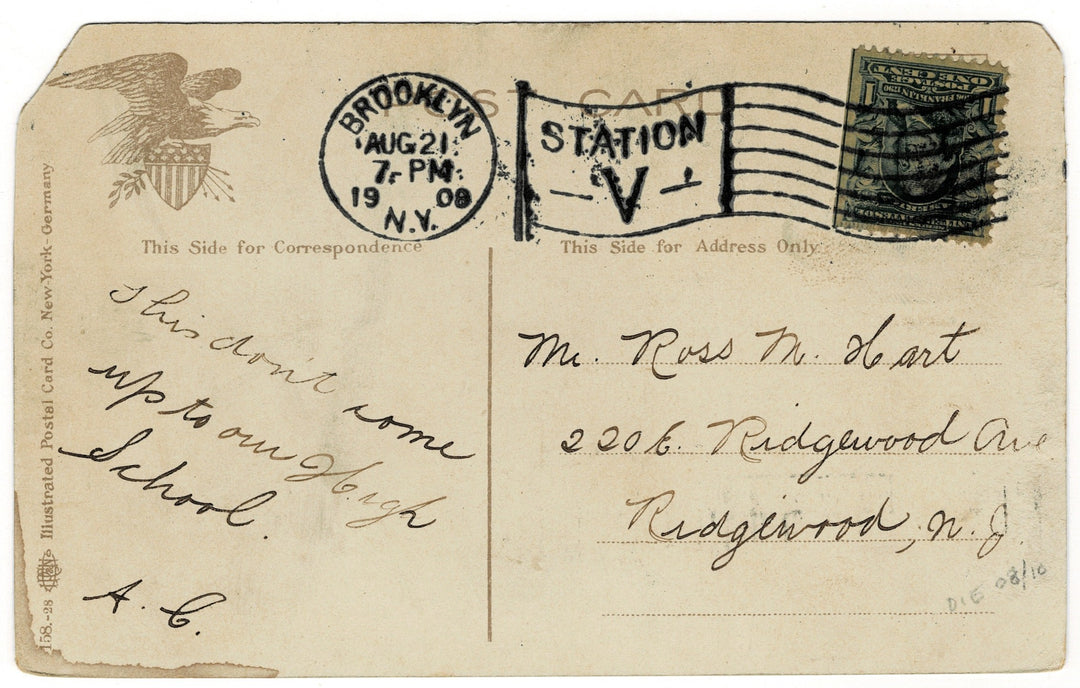 POST CARD
BROOKLYN
AUG 21
7- PM
19 08
N.Y.
STATION
V
POSTAGE
ONE CENT
1 FRANKLIN 1790 1
This Side for Correspondence
This Side for Address Only
This don't come
up to our High
School.
A. C.
Mr. Ross M. Hart
220 E. Ridgewood Ave
Ridgewood, N. J.
DIE 08/10
158.-28 Illustrated Postal Card Co. New-York-Germany